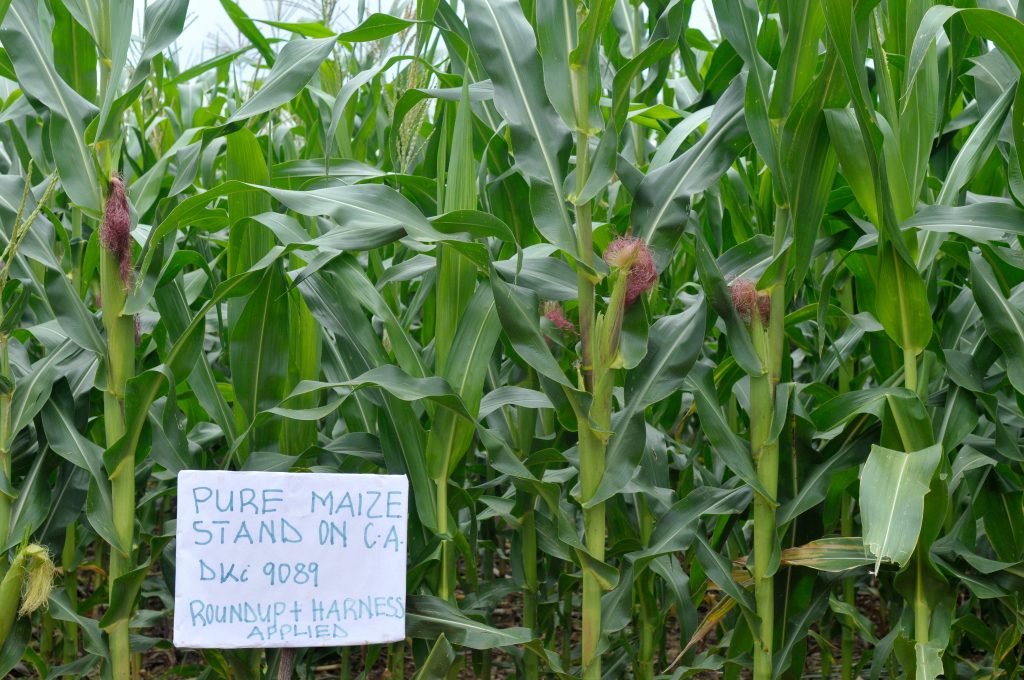 PURE MAIZE
STAND ON C.A.
DKc 9089
ROUNDUP + HARNESS
APPLIED